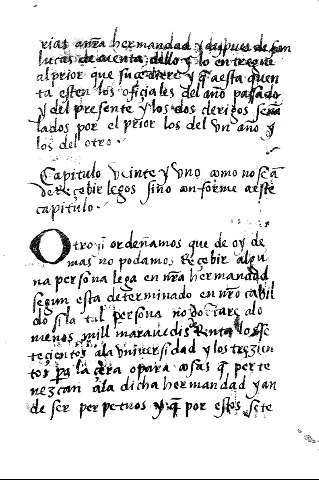 rias a nr̃a hermandad y despues de san
lucas de cuenta dello y lo entregue
al prior que sucediere y q̃ a esta quen
ta esten los oficiales del año pasado
y del presente y los dos clerigos seña
lados por el prior los del un año y
los del otro.
Capitulo veinte y uno como no se a
de Recebir legos sino conforme a este
capitulo.
Otro ii ordenamos que de oy de
mas no podamos Recebir algu
na persona lega en nr̃a hermandad
segun esta determinado en nr̃o cabil
do si la tal persona no dotare alo
menos mill maravedis Renta los se
tecientos ala universidad y los trezien
tos pa la cera o para cosas q̃ perte
nezcan ala dicha hermandad y an
de ser perpetuos y q̃ por estos sete